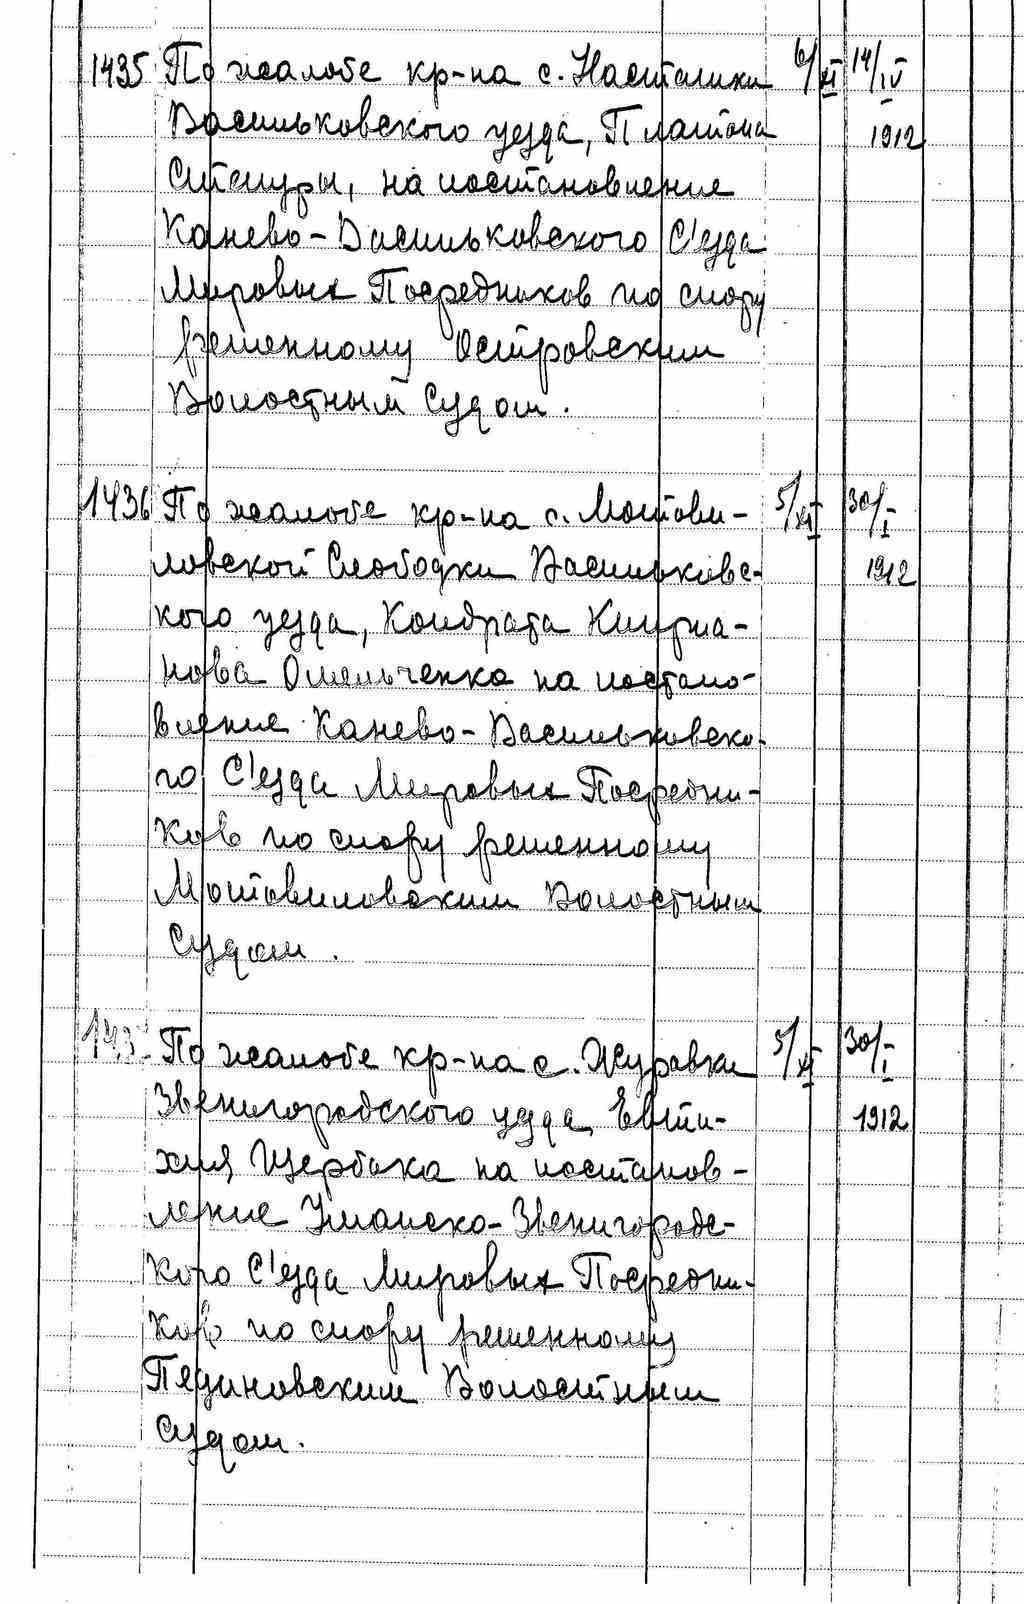 1435 По жалобе кр-на с. Насташки 6/XI 14/IV
Васильковского уезда, Платона 1912
Стецуры, на постановление
Канево-Васильковского С'езда
Мировых Посредников по спору
решенному Островским
Волостным Судом.
1436 По жалобе кр-на с. Мотови- 5/XI 30/I
ловской Слободки Васильковс- 1912
кого уезда, Кондрата Киприа-
нова Омельченка на постано-
вление Канево-Васильковско-
го С'езда Мировых Посредни-
ков по спору решенному
Мотовиловским Волостным
Судом.
По жалобе кр-на с. Журавки 5/XI 30/I
Звенигородского уезда Евти- 1912
хия Щербака на постанов-
ление Уманско-Звенигородс-
кого С'езда Мировых Посредни-
ков по спору решенному
Пединовским Волостным
Судом.